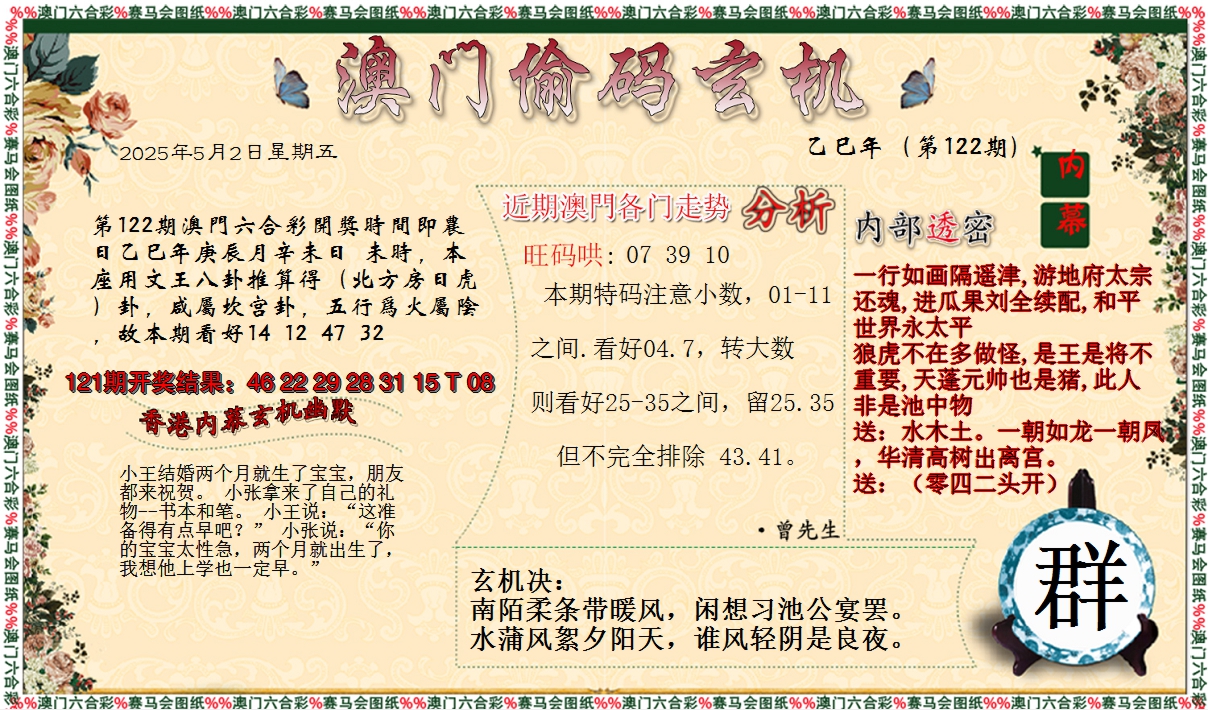 %%澳门六合彩%赛马会图纸%%澳门六合彩%赛马会图纸%%澳门六合彩%赛马会图纸%%澳门六合彩%赛马会图纸%%澳门六合彩%赛马会图纸%%澳门六合彩%赛马会图纸%%
澳门偷码玄机
2025年5月2日星期五
乙巳年（第122期）
内
幕
第122期澳門六合彩開獎時間即農
日乙巳年庚辰月辛未日 未時，本
座用文王八卦推算得（北方房日虎
）卦，咸屬坎宫卦，五行爲火屬陰
，故本期看好14 12 47 32
121期开奖结果：46 22 29 28 31 15 T 08
香港内幕玄机幽默
小王结婚两个月就生了宝宝，朋友
都来祝贺。 小张拿来了自己的礼
物--书本和笔。 小王说：“这准
备得有点早吧？” 小张说：“你
的宝宝太性急，两个月就出生了，
我想他上学也一定早。”
近期澳門各门走势 分析
旺码哄: 07 39 10
本期特码注意小数，01-11
之间.看好04.7，转大数
则看好25-35之间，留25.35
但不完全排除 43.41。
·曾先生
内部透密
一行如画隔遥津,游地府太宗
还魂,进瓜果刘全续配,和平
世界永太平
狼虎不在多做怪,是王是将不
重要,天蓬元帅也是猪,此人
非是池中物
送：水木土。一朝如龙一朝凤
，华清高树出离宫。
送：（零四二头开）
群
玄机决：
南陌柔条带暖风，闲想习池公宴罢。
水蒲风絮夕阳天，谁风轻阴是良夜。
%%澳门六合彩%赛马会图纸%%澳门六合彩%赛马会图纸%%澳门六合彩%赛马会图纸%%澳门六合彩%赛马会图纸%%澳门六合彩%赛马会图纸%%澳门六合彩%赛马会图纸%%